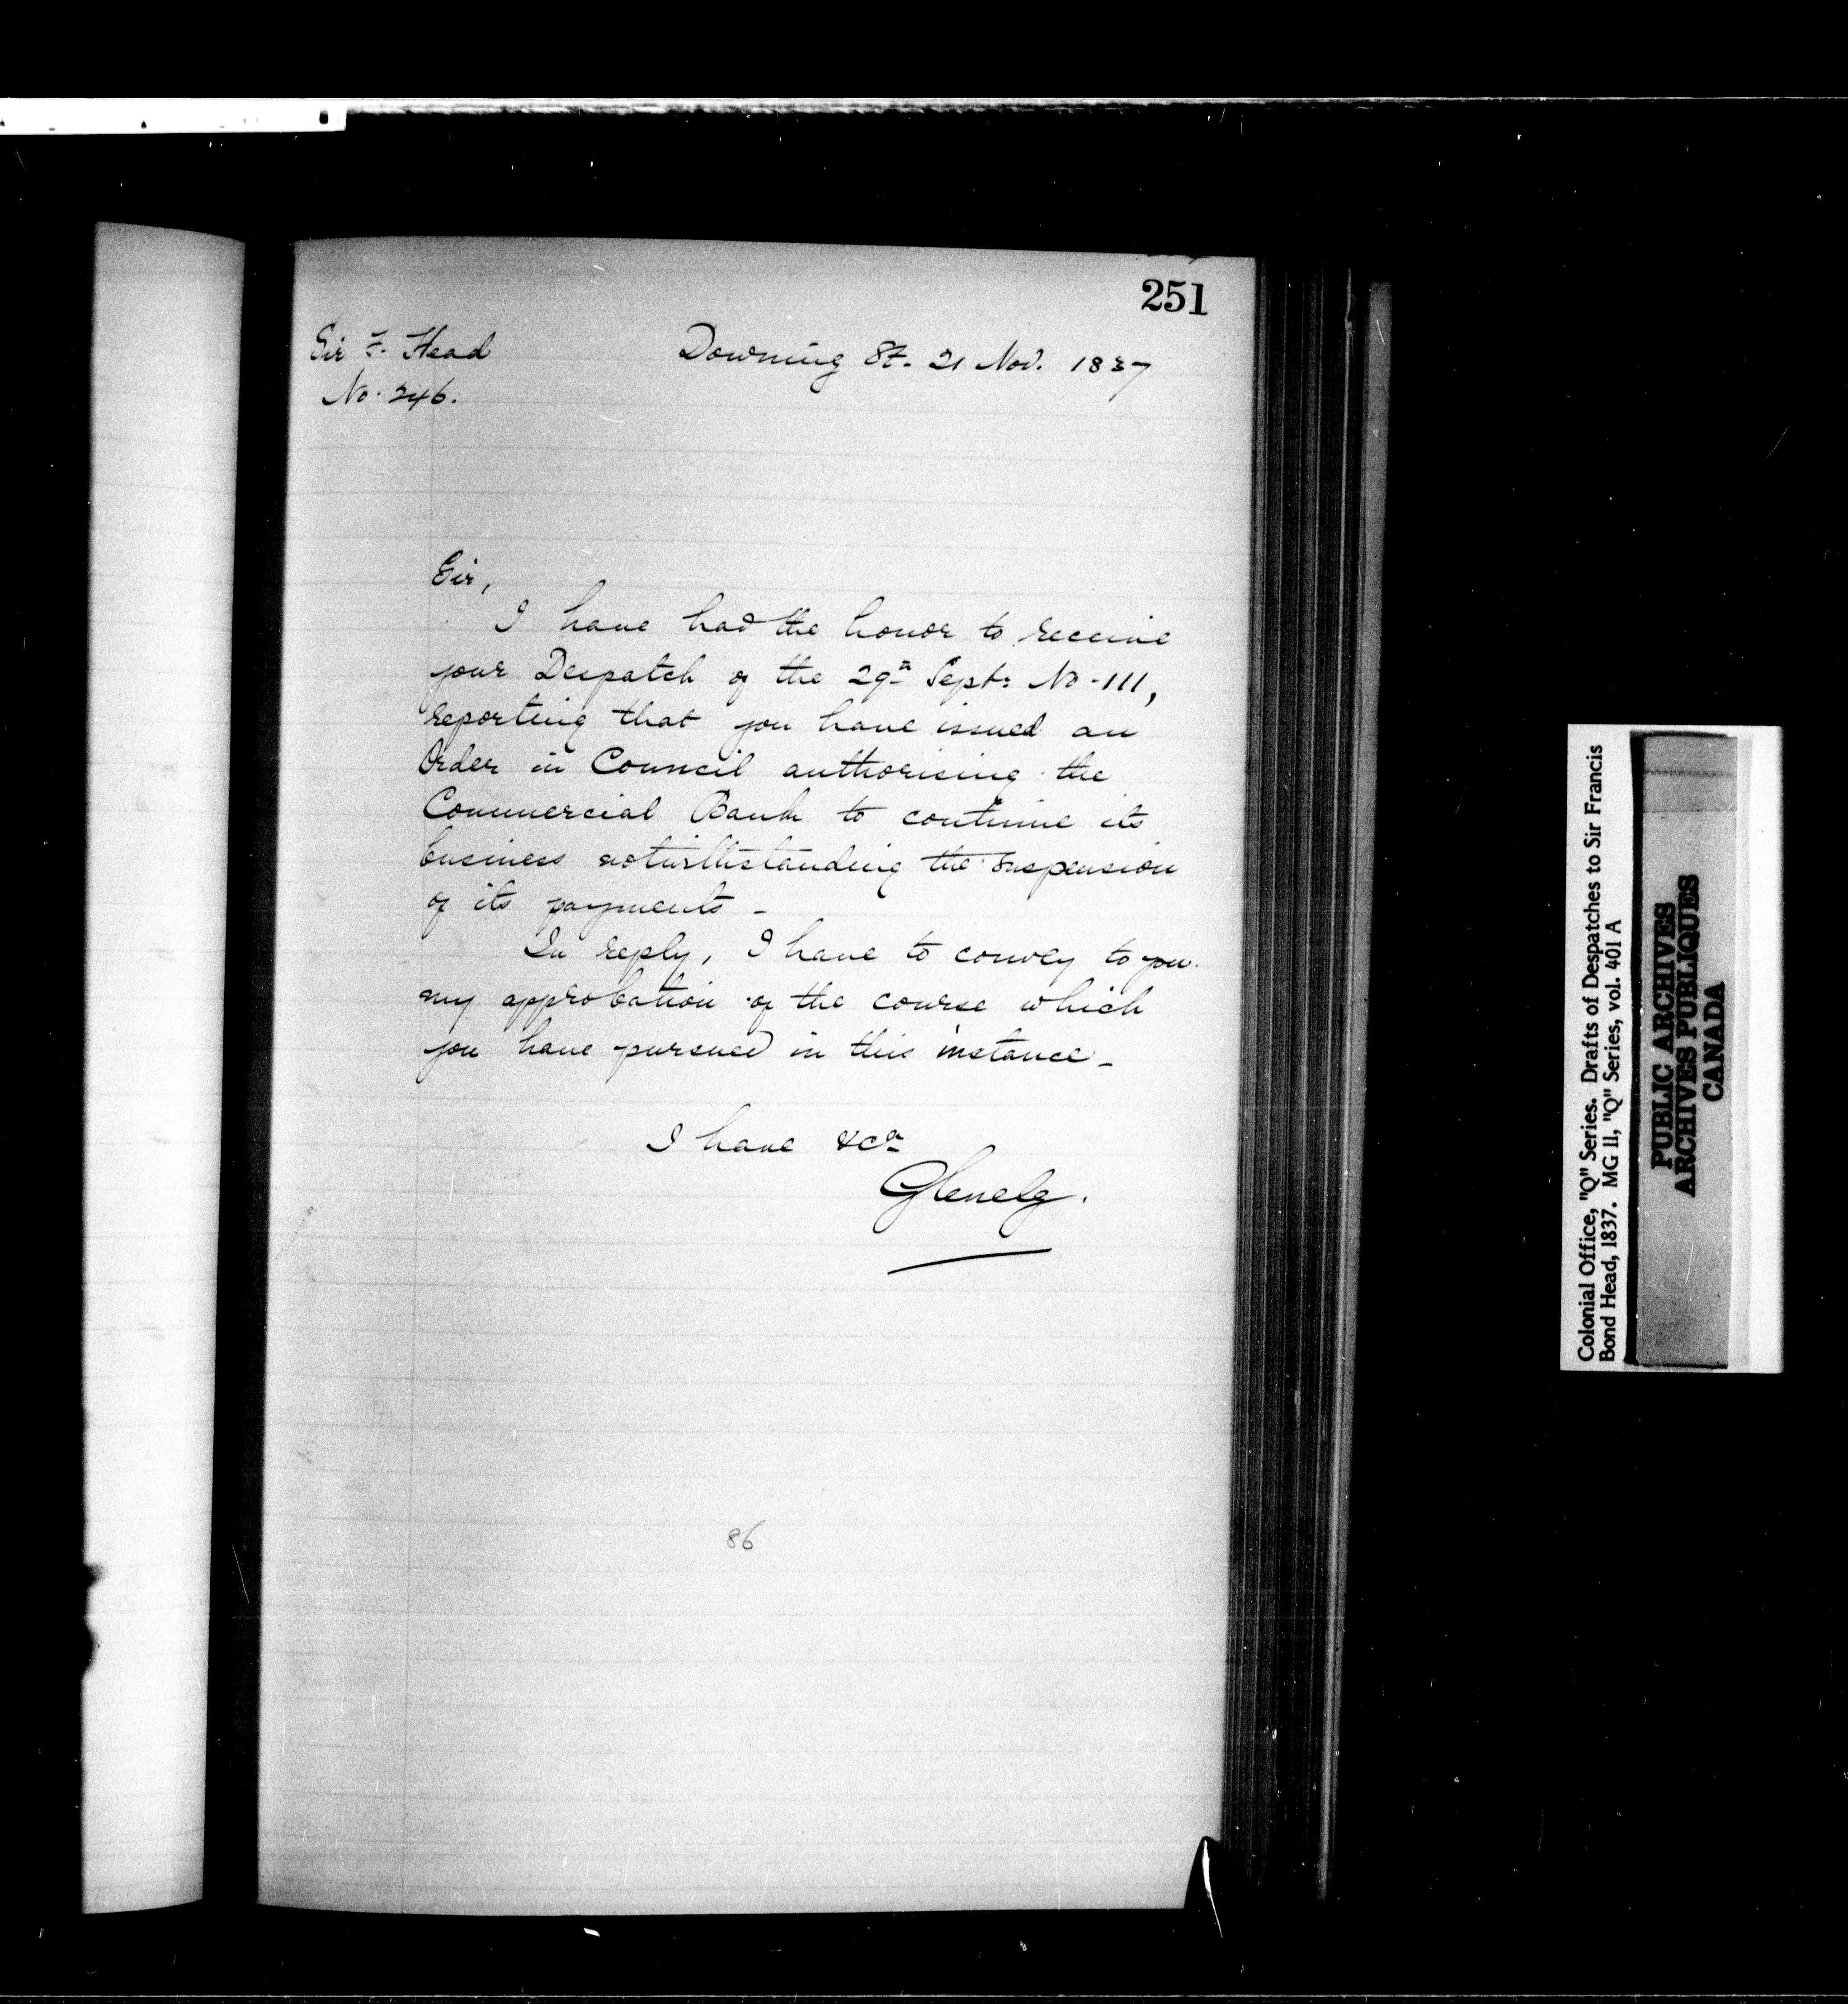 251
Sir F. Head
No. 246.
Downing St. 21 Nov. 1837
Sir,
I have had the honor to receive
your Despatch of the 29th Sept: No. 111,
reporting that you have issued an
Order in Council authorising the
Commercial Bank to continue its
business notwithstanding the suspension
of its payments -
In reply, I have to convey to you
my approbation of the course which
you have pursued in this instance -
I have &ca
Glenelg.
86
Colonial Office, "Q" Series. Drafts of Despatches to Sir Francis
Bond Head, 1837. MG 11, "Q" Series, vol. 401 A
PUBLIC ARCHIVES
ARCHIVES PUBLIQUES
CANADA